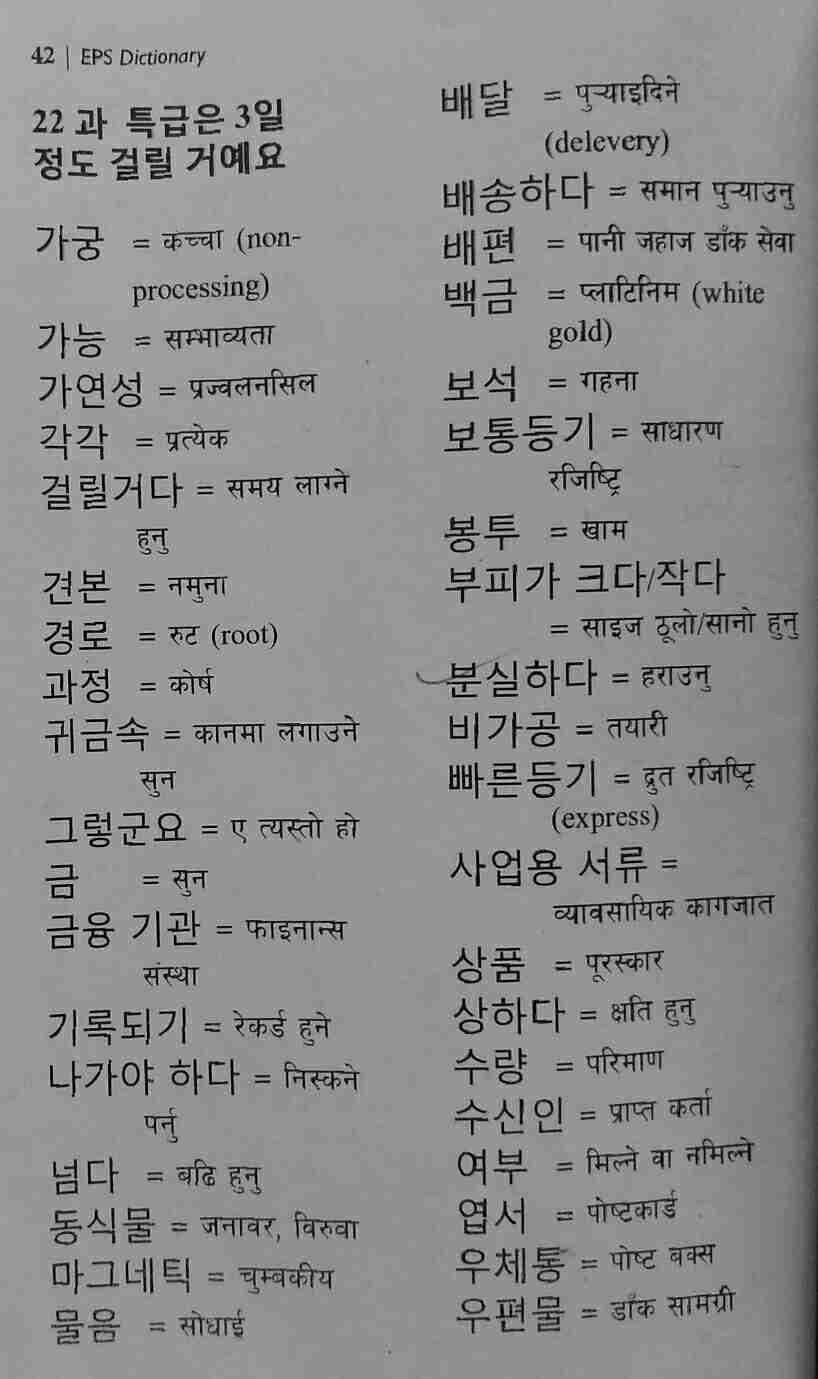 42 | EPS Dictionary
22 과 특급은 3일
정도 걸릴 거예요
가궁 = कच्चा (non-
processing)
가능 = सम्भाव्यता
가연성 = प्रज्वलनसिल
각각 = प्रत्येक
걸릴거다 = समय लाग्ने
हुनु
견본 = नमुना
경로 = रुट (root)
과정 = कोर्ष
귀금속 = कानमा लगाउने
सुन
그렇군요 = ए त्यस्तो हो
금 = सुन
금융 기관 = फाइनान्स
संस्था
기록되기 = रेकर्ड हुने
나가야 하다 = निस्कने
पर्नु
넘다 = बढि हुनु
동식물 = जनावर, विरुवा
마그네틱 = चुम्बकीय
물음 = सोधाई
배달 = पुऱ्याइदिने
(delevery)
배송하다 = समान पुऱ्याउनु
배편 = पानी जहाज डाँक सेवा
백금 = प्लाटिनिम (white
gold)
보석 = गहना
보통등기 = साधारण
रजिष्ट्रि
봉투 = खाम
부피가 크다/작다
= साइज ठूलो/सानो हुनु
분실하다 = हराउनु
비가공 = तयारी
빠른등기 = द्रुत रजिष्ट्रि
(express)
사업용 서류 =
व्यावसायिक कागजात
상품 = पूरस्कार
상하다 = क्षति हुनु
수량 = परिमाण
수신인 = प्राप्त कर्ता
여부 = मिल्ने वा नमिल्ने
엽서 = पोष्टकार्ड
우체통 = पोष्ट बक्स
우편물 = डाँक सामग्री